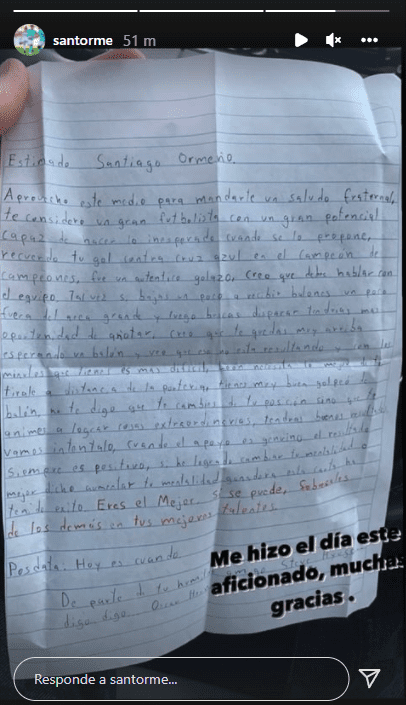 santorme 51 m
Estimado Santiago Ormeño.
Aprovecho este medio para mandarte un saludo fraternal,
te considero un gran futbolista con un gran potencial
capaz de hacer lo inesperado cuando se lo propone,
recuerdo tu gol contra cruz azul en el campeon de
campeones, fue un autentico golazo, creo que debes hablar con
el equipo. Tal vez si bajas un poco a recibir balones un poco
fuera del area grande y luego buscas disparar tendrias mas
oportunidad de anotar, creo que te quedas muy arriba
esperando un balón y veo que no esta resultando y en los
minutos que tienes es mas dificil,
tirale a distancia de la porteria, tienes muy buen golpeo de
balón, no te digo que te cambies de tu posicion sino que te
animes a lograr cosas extraordinarias, tendras buenos
vamos intentalo, cuando el apoyo es genuino el resultado
siempre es positivo, si he logrado cambiar tu mentalidad o
mejor dicho aumentar tu mentalidad ganadora esta carta ha
tenido exito Eres el Mejor, si se puede,
de los demás en tus mejores talentos
Posdata: Hoy es cuando.
De parte de tu
digo, digo Oscar
Me hizo el día este
aficionado, muchas
gracias .
Responde a santorme...